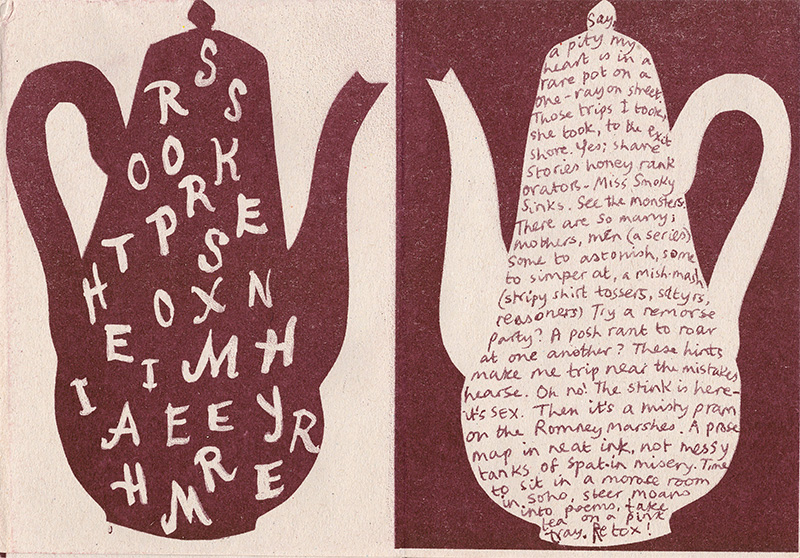 S
R S
O O K
T P R E
S
H O X N
E I M H
I A E E Y R
H M R E
Say,
a pity my
heart is in a
rare pot on a
one-rayon street.
Those trips I took,
she took, to the exit
shore. Yes; shame
stories honey rank
orators - Miss Smoky
Sinks. See the monsters.
There are so many;
mothers, men (a series)
some to astonish, some
to simper at, a mish-mash
(stripy shirt tossers, satyrs,
reasoners) Try a remorse
party? A posh rant to roar
at one another? These hints
make me trip near the mistakes
hearse. Oh no! The stink is here -
it's SEX. Then it's a misty pram
on the Romney marshes. A prose
map in neat ink, not messy
tanks of spat-in misery. Time
to sit in a morose room
in Soho, steer moans
into poems, take
tea on a pink
tray. Retox!